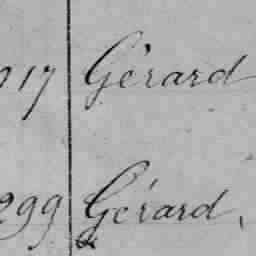 917 Gérard
299 Gérard,